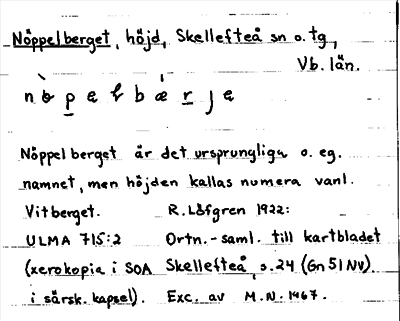 Nöppelberget, höjd, Skellefteå sn o. tg.,
Vb. län.
Nöppelberget är det ursprungliga o. eg.
namnet, men höjden kallas numera vanl.
Vitberget. R. Löfgren 1922:
ULMA 715:2 Ortn.-saml. till kartbladet
(xerokopia i SOA Skellefteå, s. 24 (Gn 51 NV).
i särsk. kapsel). Exc. av M.N. 1967.